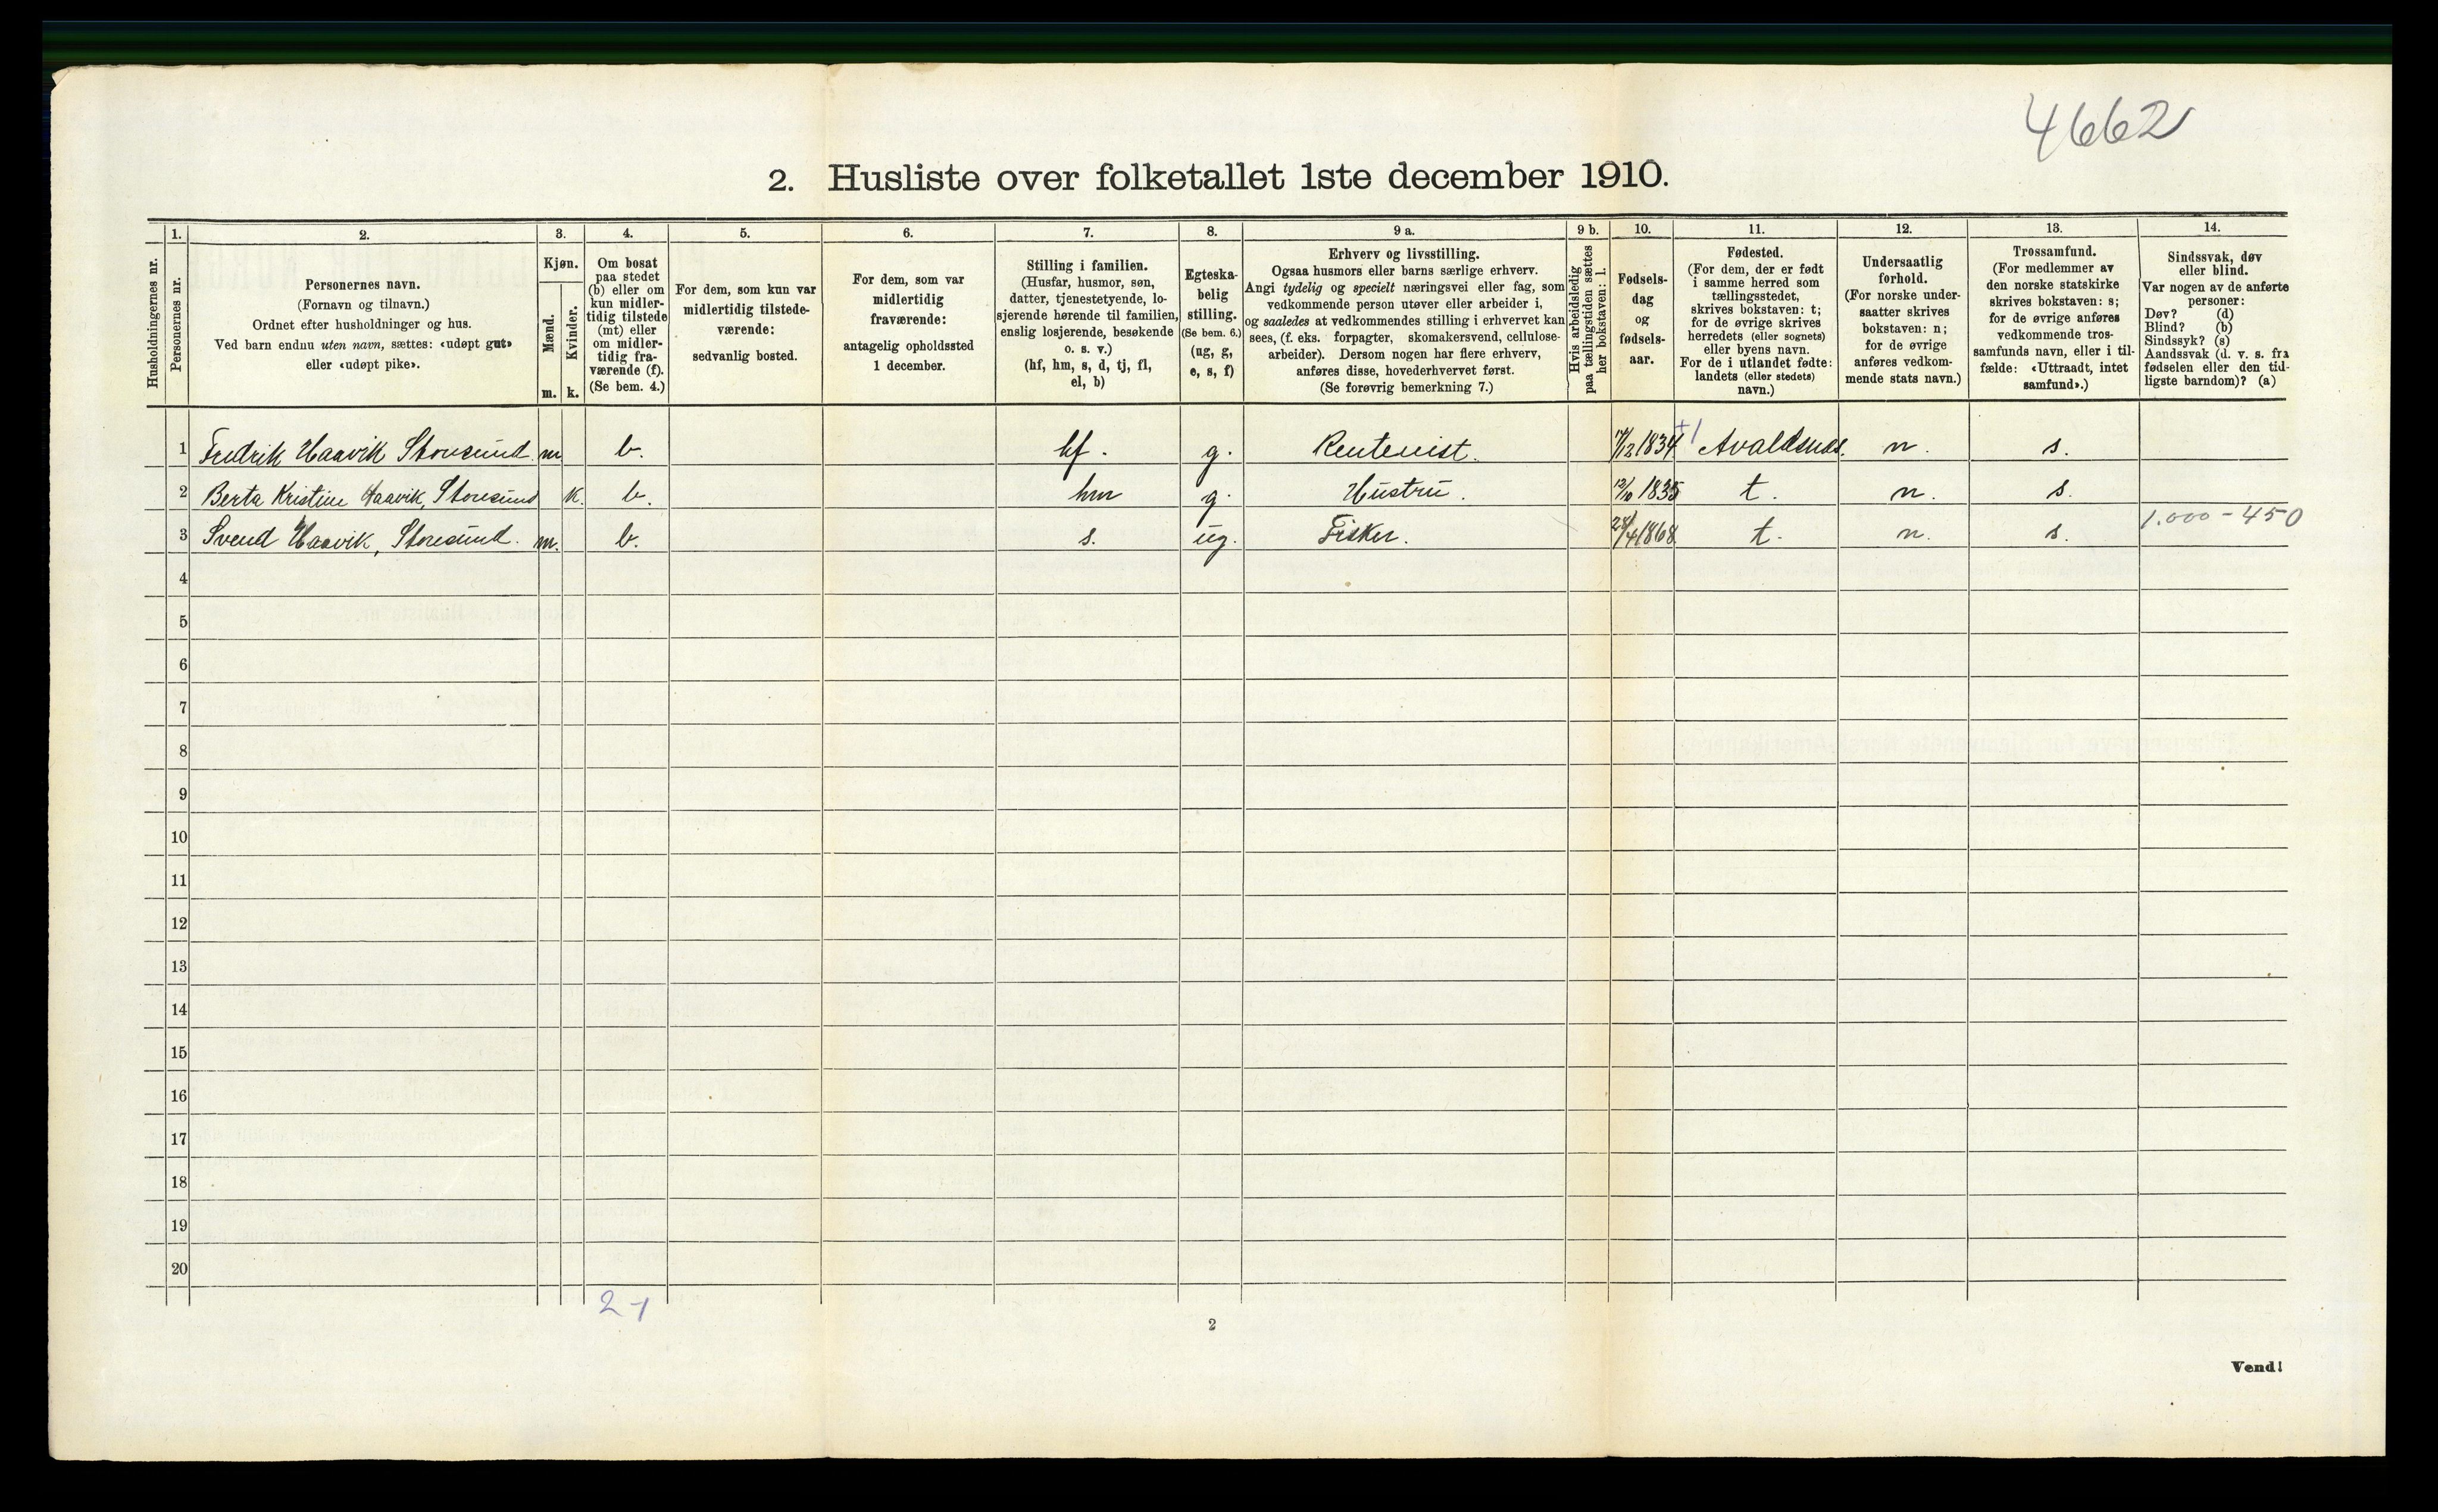 4662
2. Husliste over folketallet 1ste december 1910.
1. 2. 3. 4. 5. 6. 7. 8. 9 a. 9 b. 10. 11. 12. 13. 14.
Husholdningernes nr.
Personernes nr.
Personernes navn.
(Fornavn og tilnavn.)
Ordnet efter husholdninger og hus.
Ved barn endnu uten navn, sættes: «udøpt gut»
eller «udøpt pike».
Kjøn.
Mænd.
Kvinder.
m. k.
Om bosat
paa stedet
(b) eller om
kun midler-
tidig tilstede
(mt) eller
om midler-
tidig fra-
værende (f).
(Se bem. 4.)
For dem, som kun var
midlertidig tilstede-
værende:
sedvanlig bosted.
For dem, som var
midlertidig
fraværende:
antagelig opholdssted
1 december.
Stilling i familien.
(Husfar, husmor, søn,
datter, tjenestetyende, lo-
sjerende hørende til familien,
enslig losjerende, besøkende
o. s. v.)
(hf, hm, s, d, tj, fl,
el, b)
Egteska-
belig
stilling.
(Se bem. 6.)
(ug, g,
e, s, f)
Erhverv og livsstilling.
Ogsaa husmors eller barns særlige erhverv.
Angi tydelig og specielt næringsvei eller fag, som
vedkommende person utøver eller arbeider i,
og saaledes at vedkommendes stilling i erhvervet kan
sees, (f. eks. forpagter, skomakersvend, cellulose-
arbeider). Dersom nogen har flere erhverv,
anføres disse, hovederhvervet først.
(Se forøvrig bemerkning 7.)
Hvis arbeidsledig
paa tællingstiden sættes
her bokstaven: l.
Fødsels-
dag
og
fødsels-
aar.
Fødested.
(For dem, der er født
i samme herred som
tællingsstedet,
skrives bokstaven: t;
for de øvrige skrives
herredets (eller sognets)
eller byens navn.
For de i utlandet fødte:
landets (eller stedets)
navn.)
Undersaatlig
forhold.
(For norske under-
saatter skrives
bokstaven: n;
for de øvrige
anføres vedkom-
mende stats navn.)
Trossamfund.
(For medlemmer av
den norske statskirke
skrives bokstaven: s;
for de øvrige anføres
vedkommende tros-
samfunds navn, eller i til-
fælde: «Uttraadt, intet
samfund».)
Sindssvak, døv
eller blind.
Var nogen av de anførte
personer:
Døv? (d)
Blind? (b)
Sindssyk? (s)
Aandssvak (d. v. s. fra
fødselen eller den tid-
ligste barndom)? (a)
1 Fredrik Haavik Storesund. m b. hf. g. Rentenist. 1834 Avaldsnes. n. s.
2 Berta Kristine Haavik, Storesund k. b. hm g. Hustru. 12/10 1835 t. n. s.
3 Svend Haavik, Storesund. m. b. s. ug. Fisker. 28/4 1868 t. n. s. 1.000-450
4
5
6
7
8
9
10
11
12
13
14
15
16
17
18
19
20
2-1
2
Vend!